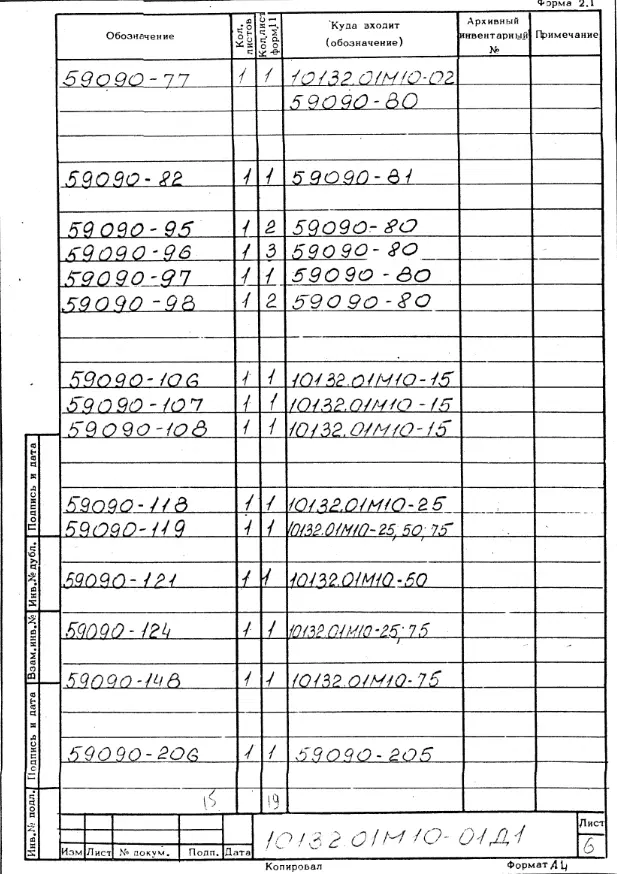 Форма 2.1
Обозначение Кол. листов Кол.лист форм.11 Куда входит (обозначение) Архивный инвентарный № Примечание
59090-77 1 1 10132.01М10-02
59090-80
59090-82 1 1 59090-81
59090-95 1 2 59090-80
59090-96 1 3 59090-80
59090-97 1 1 59090-80
59090-98 1 2 59090-80
59090-106 1 1 10132.01М10-15
59090-107 1 1 10132.01М10-15
59090-108 1 1 10132.01М10-15
59090-118 1 1 10132.01М10-25
59090-119 1 1 10132.01М10-25, 50; 75
59090-121 1 1 10132.01М10-50
59090-124 1 1 10132.01М10-25; 75
59090-148 1 1 10132.01М10-75
59090-206 1 1 59090-205
15 19
Инв.№ подл. Подпись и дата Взам.инв.№ Инв.№ дубл. Подпись и дата
10132.01М10-01Д1
Лист
6
Изм Лист № докум. Подп. Дата
Копировал Формат А4